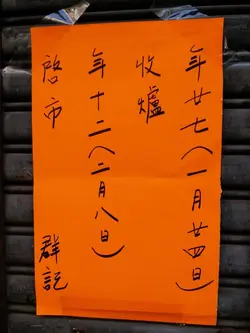 年廿七(一月廿四日)
收爐
年十二(二月八日)
啓市 群記